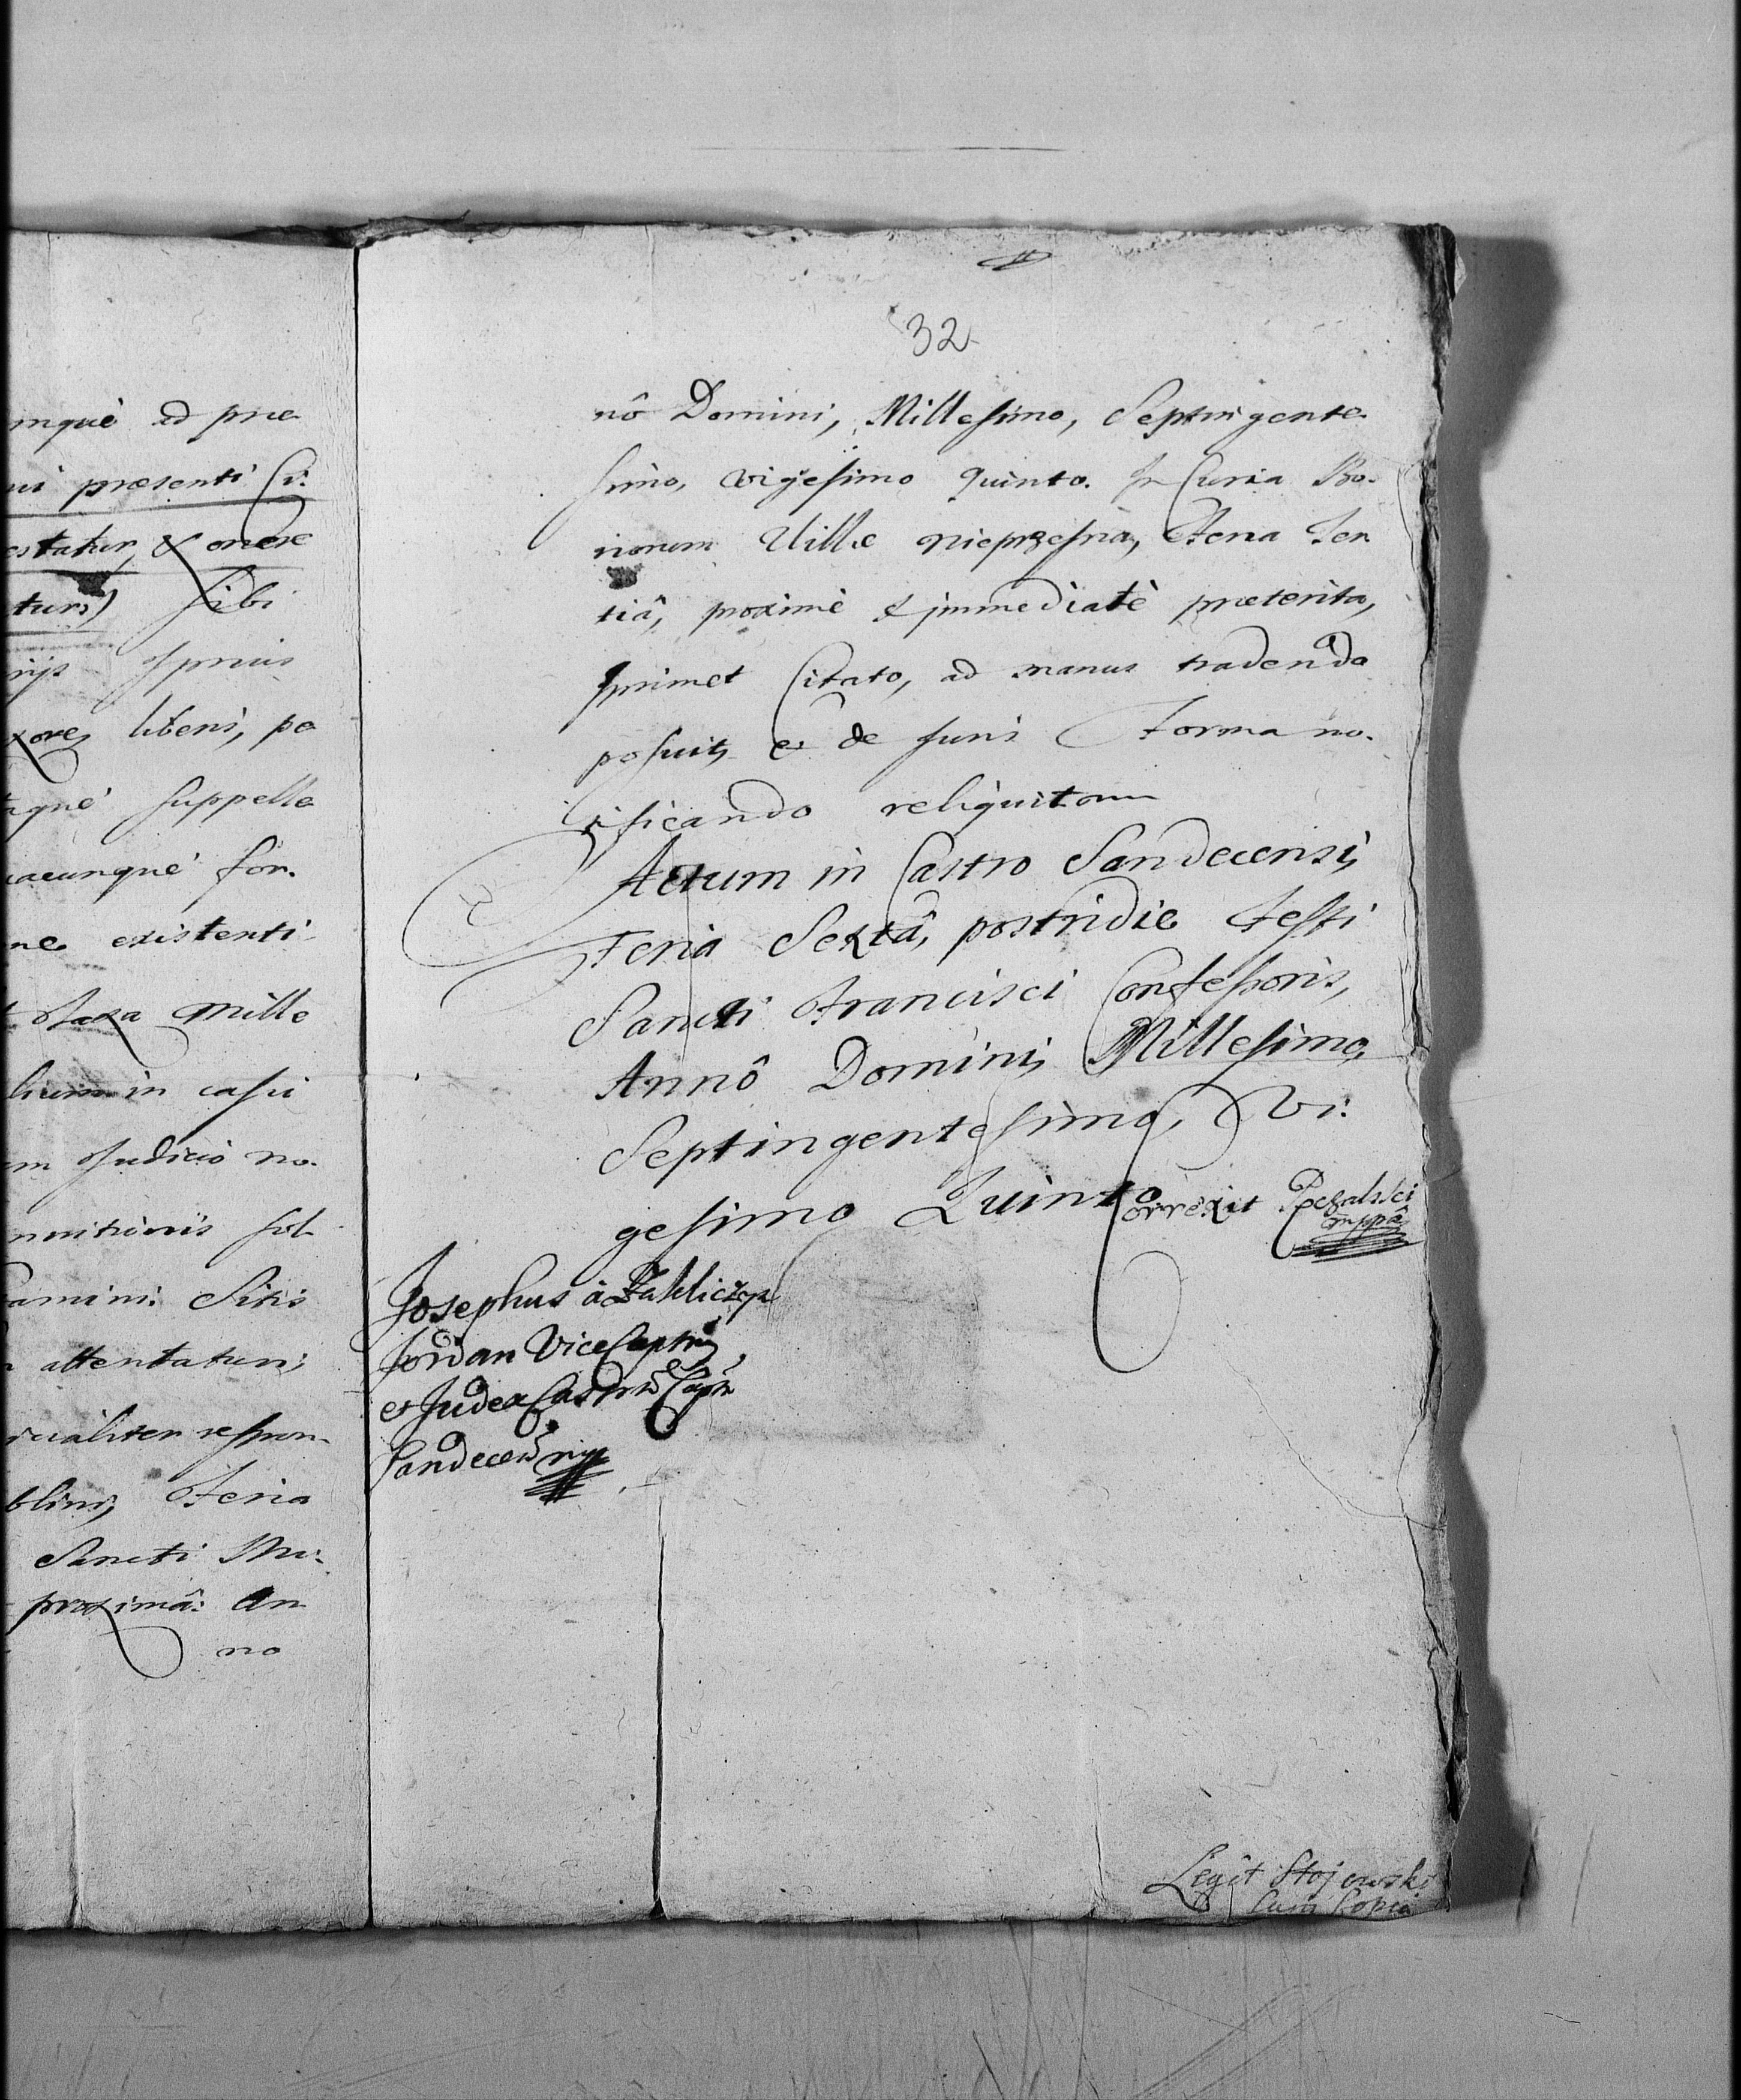 mque ad præ
ui præsenti Ci:
estatur, & onere
tur) sibi
rijs Ipsius
xores liberi, pe
tque suppelle
uacunque for.
ne existenti
Taxa Mille
lium in casu
um Judicio no.
nnitionis sol
tamini: Sitis
attentaturi;
icialiter respon.
blini, Feria
Sancti Mi:
proximâ: An
no
32
nô Domini, Millesimo, Septingente.
simo, vigesimo quinto. In Curia Bo.
norum Villæ Nieprzesna, Feria Ter
tiâ, proximè & immediatè præterita,
Ipsimet Citato, ad manus tradendo
posuit, et de Juris Forma no.
tificando reliquit
Actum in Castro Sandecensi,
Feria Sextâ, postridie Festi
Sancti Francisci Confessoris,
Annô Domini, Millesimo,
Septingentesimo, Vi:
gesimo Quinto
Correxit
mppâ
Josephus à Zakliczyn
Jordan ViceCaptns
et Judex Castrn Captn
Sandecen mp
Legit Stojewski
Cum Copia